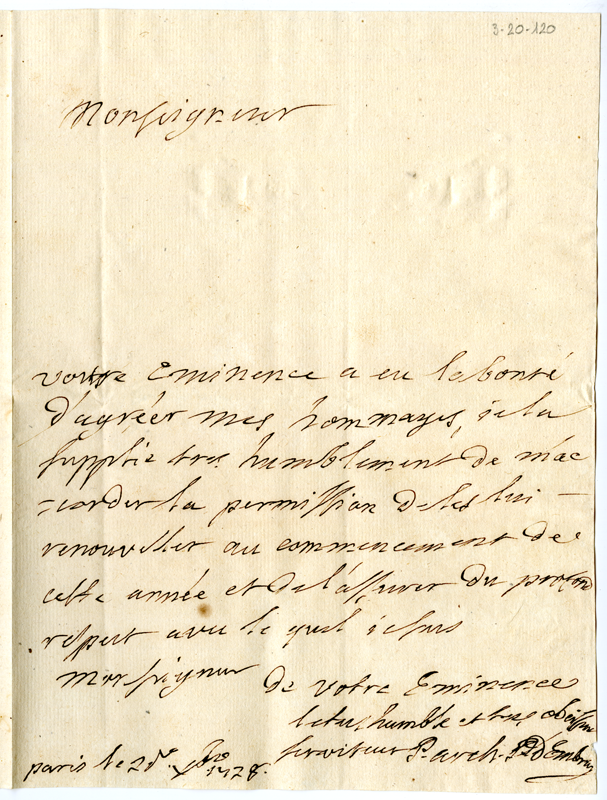 3-20-120
Monseigneur
votre Eminence a eu la bonté
d'agréer mes hommages, je la
supplie tres humblement de m'ac
=corder la permission de les lui —
renouveller au commencement de
cette année et de l'assurer du profond
respect avec le quel je suis
Monseigneur
de votre Eminence
le tres humble et tres obeissant
serviteur P. arch. P. d'Embrun
paris le 1728.